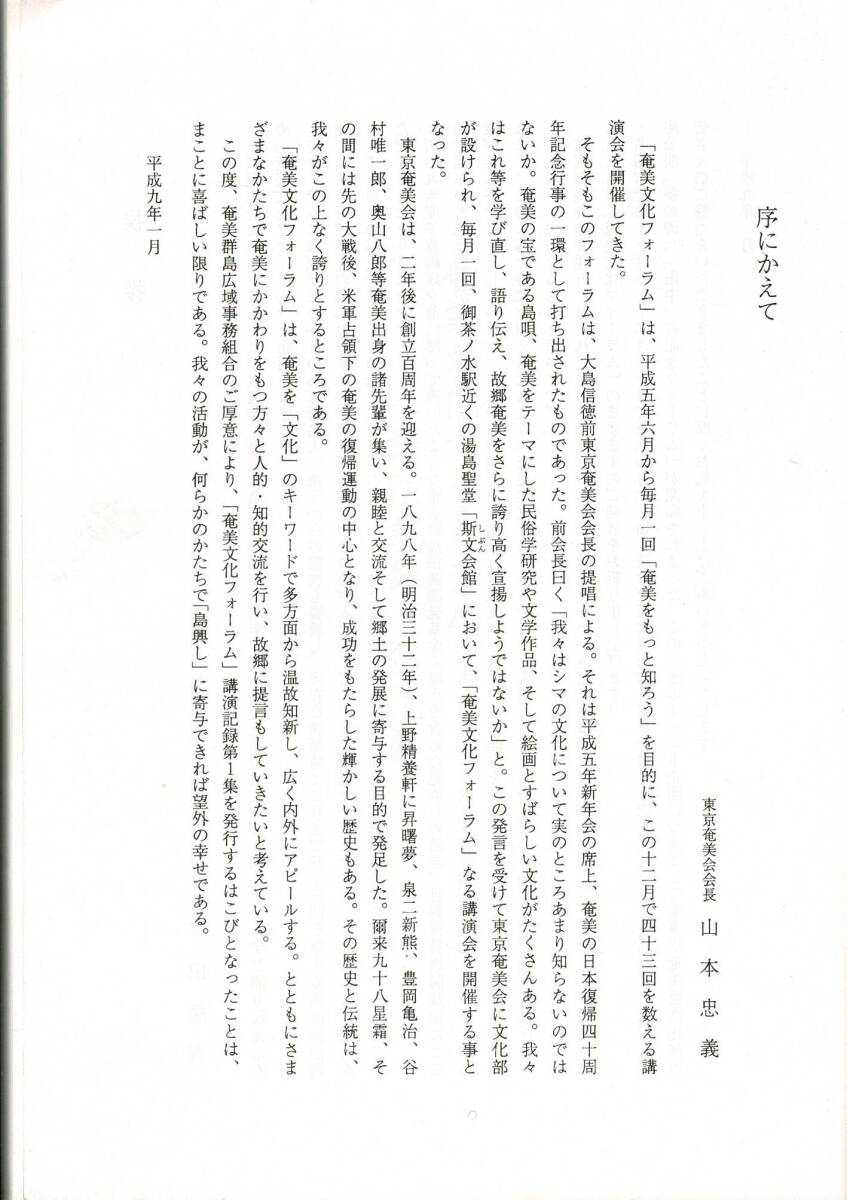 序にかえて
東京奄美会会長　山本忠義
「奄美文化フォーラム」は、平成五年六月から毎月一回「奄美をもっと知ろう」を目的に、この十二月で四十三回を数える講
演会を開催してきた。
そもそもこのフォーラムは、大島信徳前東京奄美会会長の提唱による。それは平成五年新年会の席上、奄美の日本復帰四十周
年記念行事の一環として打ち出されたものであった。前会長曰く「我々はシマの文化について実のところあまり知らないのでは
ないか。奄美の宝である島唄、奄美をテーマにした民俗学研究や文学作品、そして絵画とすばらしい文化がたくさんある。我々
はこれ等を学び直し、語り伝え、故郷奄美をさらに誇り高く宣揚しようではないか」と。この発言を受けて東京奄美会に文化部
が設けられ、毎月一回、御茶ノ水駅近くの湯島聖堂「斯文会館」において、「奄美文化フォーラム」なる講演会を開催する事と
しぶん
なった。
東京奄美会は、二年後に創立百周年を迎える。一八九八年（明治三十二年）、上野精養軒に昇曙夢、泉二新熊、豊岡亀治、谷
村唯一郎、奥山八郎等奄美出身の諸先輩が集い、親睦と交流そして郷土の発展に寄与する目的で発足した。爾来九十八星霜、そ
の間には先の大戦後、米軍占領下の奄美の復帰運動の中心となり、成功をもたらした輝かしい歴史もある。その歴史と伝統は、
我々がこの上なく誇りとするところである。
「奄美文化フォーラム」は、奄美を「文化」のキーワードで多方面から温故知新し、広く内外にアピールする。とともにさま
ざまなかたちで奄美にかかわりをもつ方々と人的・知的交流を行い、故郷に提言もしていきたいと考えている。
この度、奄美群島広域事務組合のご厚意により、「奄美文化フォーラム」講演記録第１集を発行するはこびとなったことは、
まことに喜ばしい限りである。我々の活動が、何らかのかたちで「島興し」に寄与できれば望外の幸せである。
平成九年一月